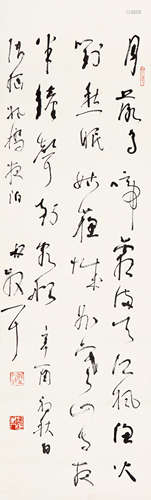 月落烏啼霜滿天江楓漁火
對愁眠姑蘇城外寒山寺夜
半鐘聲到客船 辛酉初秋日
張繼楓橋夜泊 林散耳